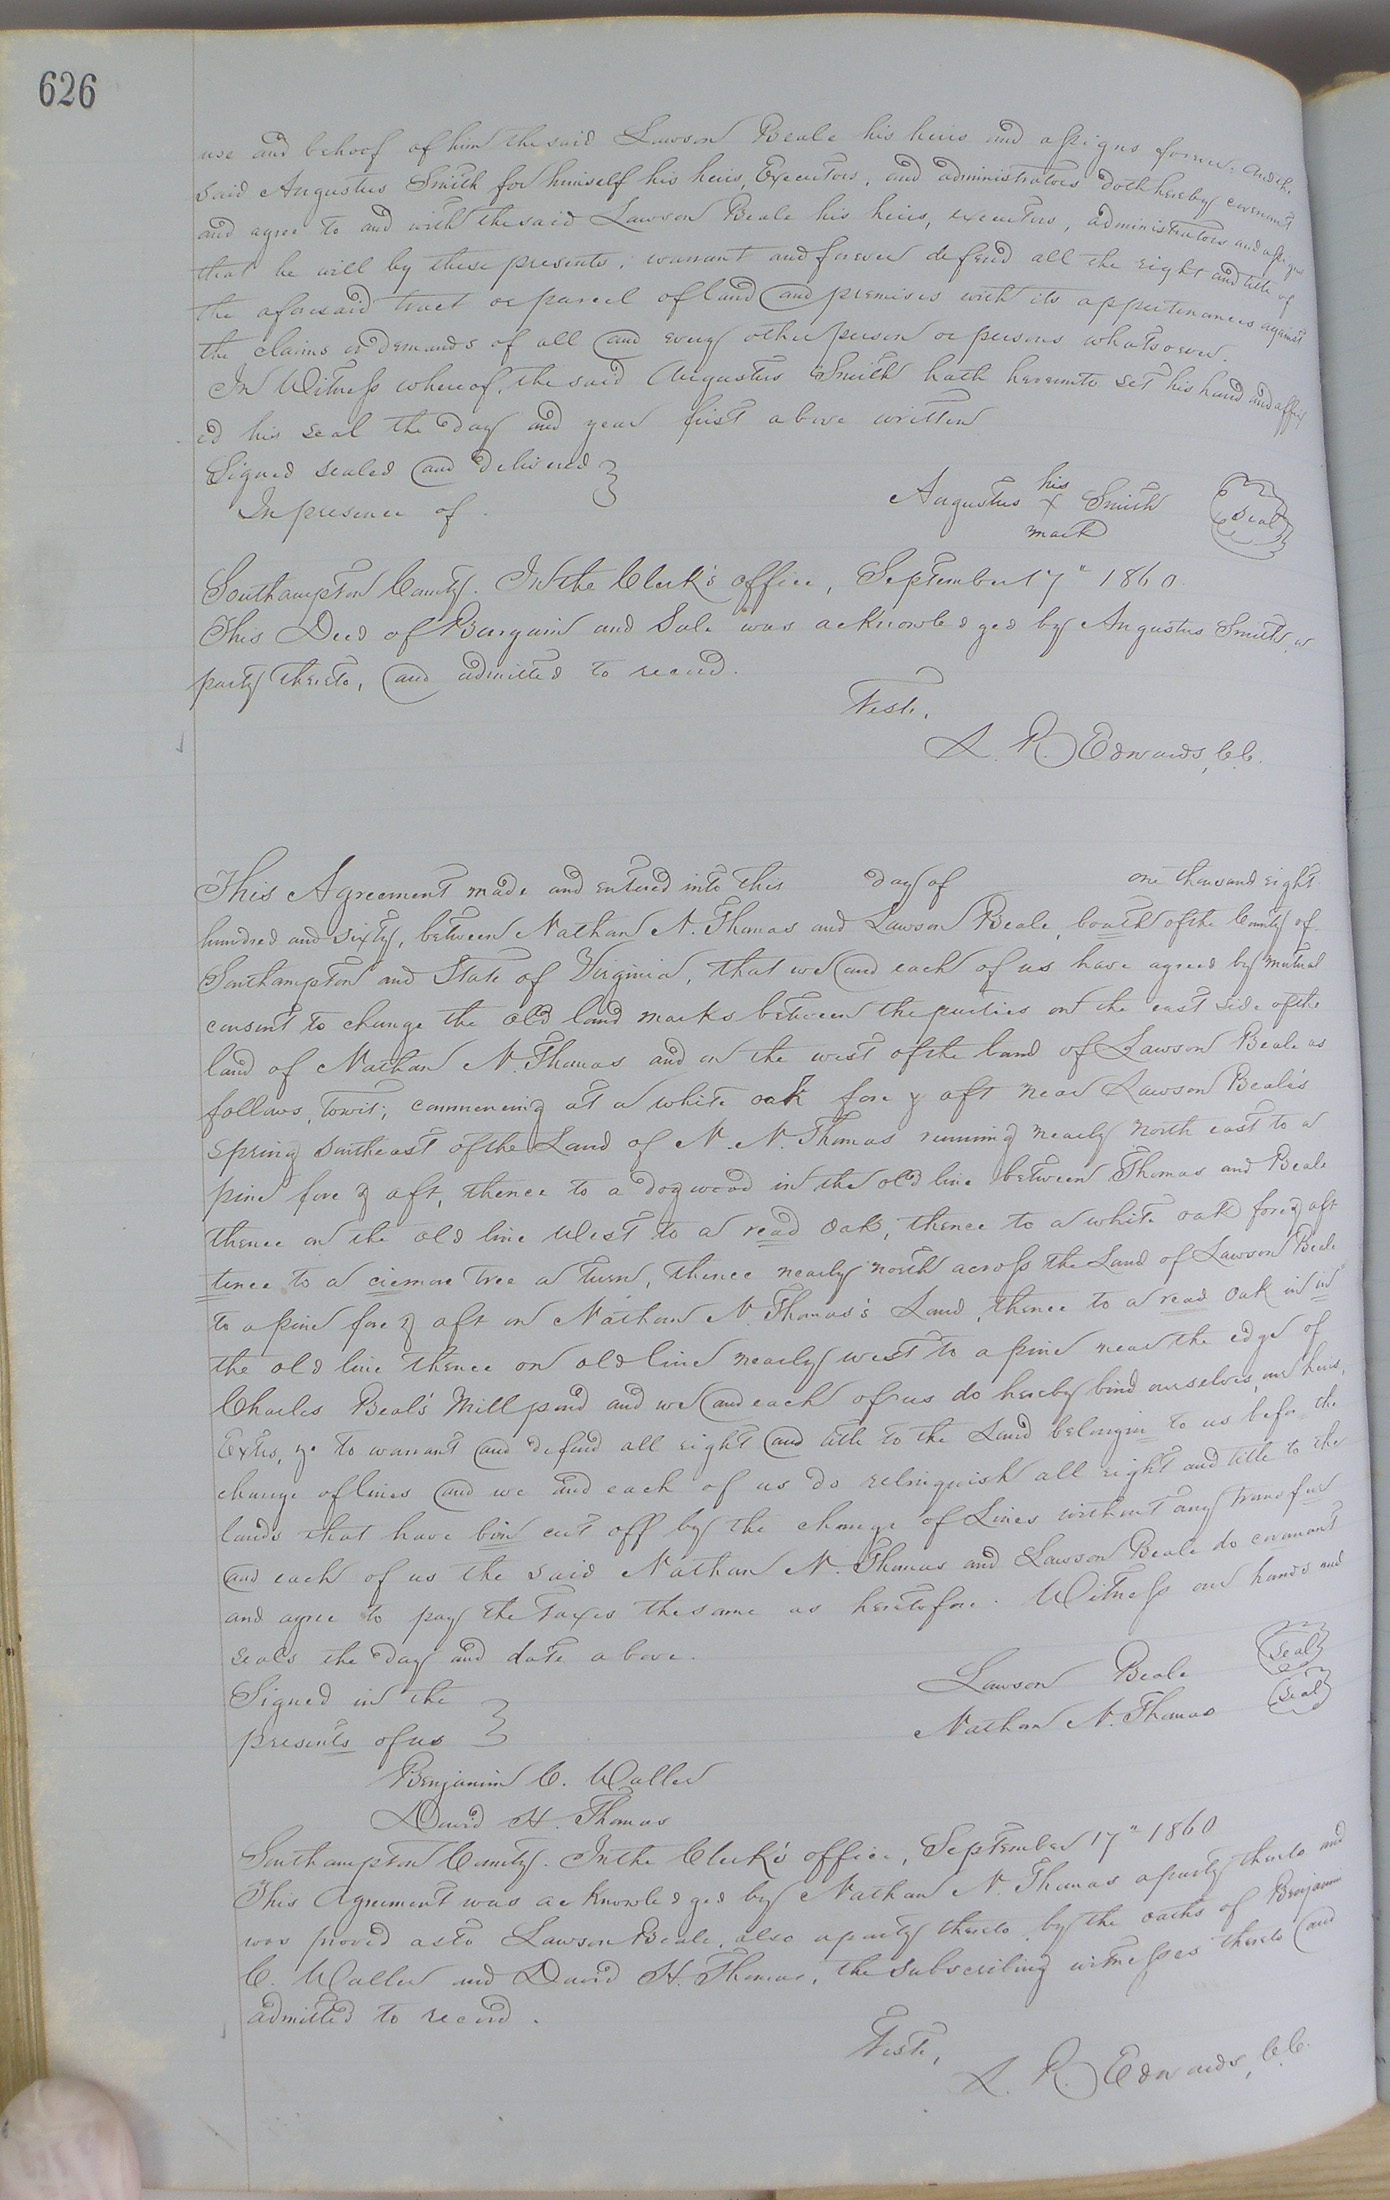 626
use and behoof of him the said Lawson Beale his heirs and assigns forever. And the
said Augustus Smith for himself his heirs, Executors, and administrators doth hereby covenant
and agree to and with the said Lawson Beale his heirs, executors, administrators and assigns
that he will by these presents, warrant and forever defend all the right and title of
the aforesaid tract or parcel of land and premises with its appertenances against
the claims or demands of all and every other person or persons whatsoever.
In Witness whereof, the said Augustus Smith hath hereunto set his hand and affix
ed his seal the day and year first above written
Signed sealed and delivered
In presence of
Augustus his x mark Smith Seal
Southampton County. In the Clerk's office, September 17" 1860.
This Deed of Bargain and Sale was acknowledged by Augustus Smith, a
party thereto, and admitted to record.
Teste,
L. R. Edwards, C.C.
This Agreement made and entered into this day of one thousand eight
hundred and sixty, between Nathan N. Thomas and Lawson Beale, bouth of the County of
Southampton and State of Virginia, that we and each of us have agreed by mutual
consent to change the old land marks between the parties on the east side of the
land of Nathan N. Thomas and on the west of the land of Lawson Beale as
follows, towit; commencing at a white oak fore & aft near Lawson Beale's
spring southeast of the Land of N. N. Thomas running nearly north east to a
pine fore & aft, thence to a dogwood in the old line between Thomas and Beale
thence on the old line West to a read oak, thence to a white oak fore & aft
tence to a ciemore tree a turn, thence nearly north across the Land of Lawson Beale
to a pine fore & aft on Nathan N. Thomas's Land, thence to a read oak in in
the old line thence on old line nearly west to a pine near the edge of
Charles Beal's Mill pond and we and each of us do hereby bind ourselves, our heirs,
Extrs, &c to warrant and defend all right and title to the Land belongin to us befor the
change of lines and we and each of us do relinquish all right and title to the
lands that have bin cut off by the change of Lines without any transfur
and each of us the said Nathan N. Thomas and Lawson Beale do covenant
and agree to pay the Taxes the same as heretofore. Witness our hands and
seals the day and date above.
Signed in the
presents of us
Lawson Beale Seal
Nathan N. Thomas Seal
Benjamin C. Waller
David H. Thomas
Southampton County. In the Clerk's office, September 17" 1860
This Agreement was acknowledged by Nathan N. Thomas a party thereto and
was proved as to Lawson Beale, also a party thereto, by the oaths of Benjamin
C. Waller and David H. Thomas, the subscribing witnesses thereto and
admitted to record.
Teste,
L. R. Edwards, C.C.